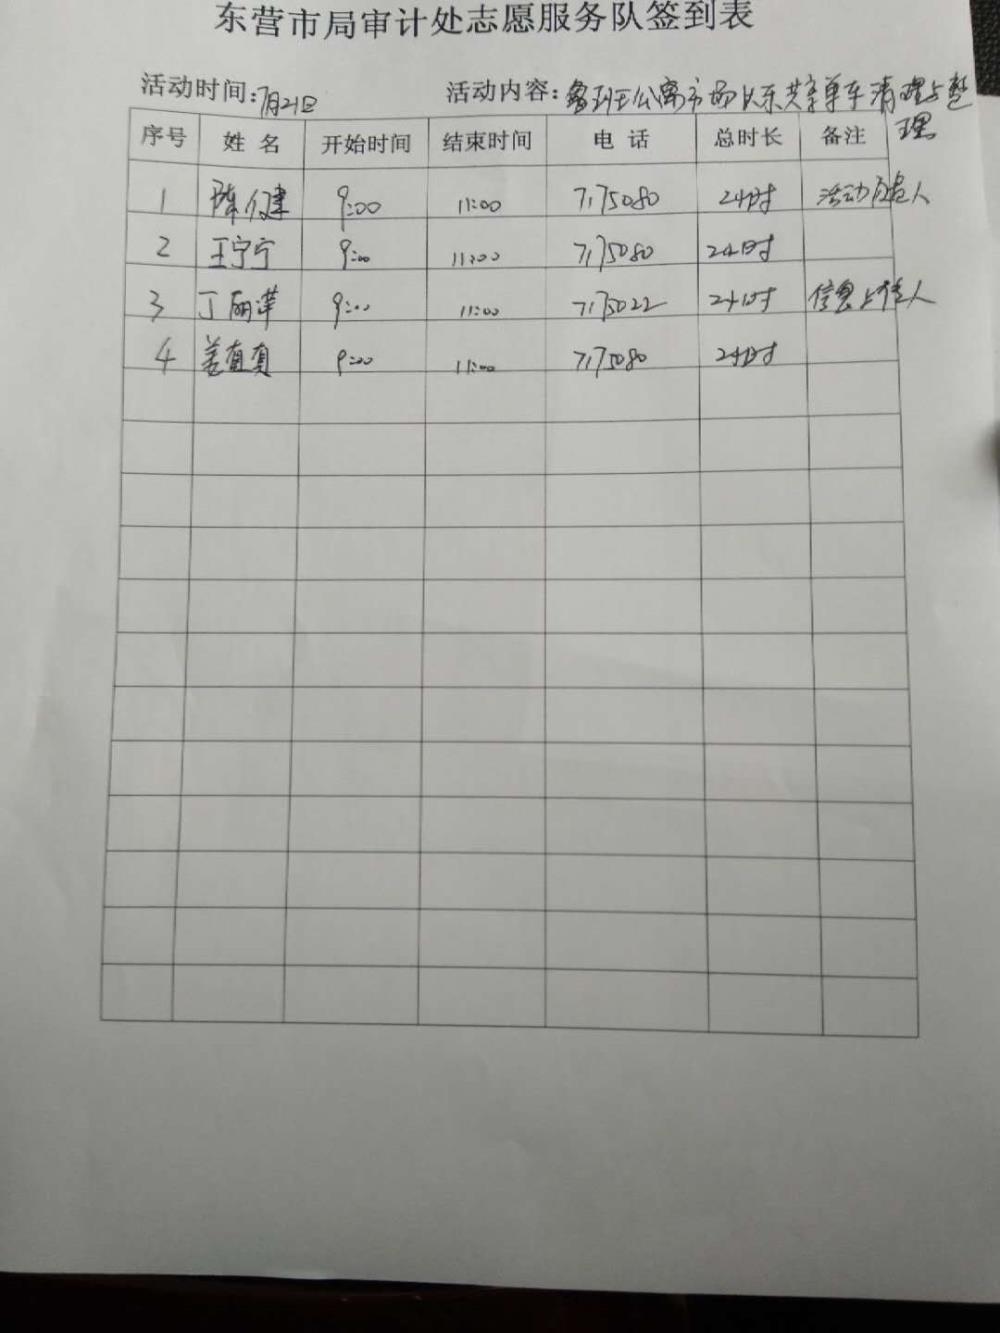 东营市局审计处志愿服务队签到表
活动时间:7月21日 活动内容:鲁班公寓市场以东共享单车清理与整
理
序号 姓名 开始时间 结束时间 电话 总时长 备注
1 陈健 9:00 11:00 7175080 2小时 活动负责人
2 王宁宁 9:00 11:00 7175080 2小时
3 丁丽萍 9:00 11:00 7175022 2小时 信息上传人
4 姜真真 9:00 11:00 7175080 2小时